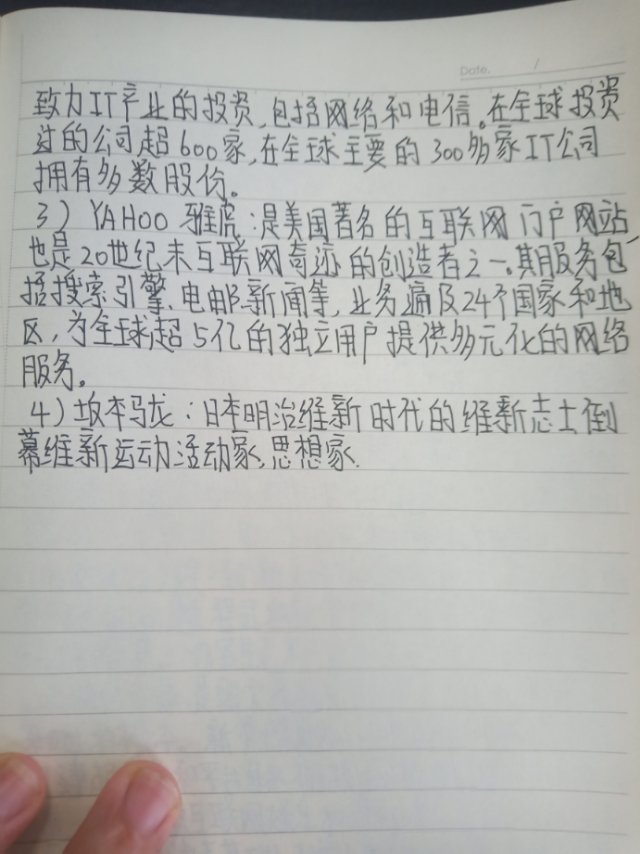 Date. /
致力IT产业的投资,包括网络和电信。在全球投资
过的公司超600家,在全球主要的300多家IT公司
拥有多数股份。
3)YAHOO 雅虎:是美国著名的互联网门户网站,
也是20世纪末互联网奇迹的创造者之一。其服务包
括搜索引擎、电邮、新闻等,业务遍及24个国家和地
区,为全球超5亿的独立用户提供多元化的网络
服务。
4)坂本马龙:日本明治维新时代的维新志士倒
幕维新运动活动家,思想家.